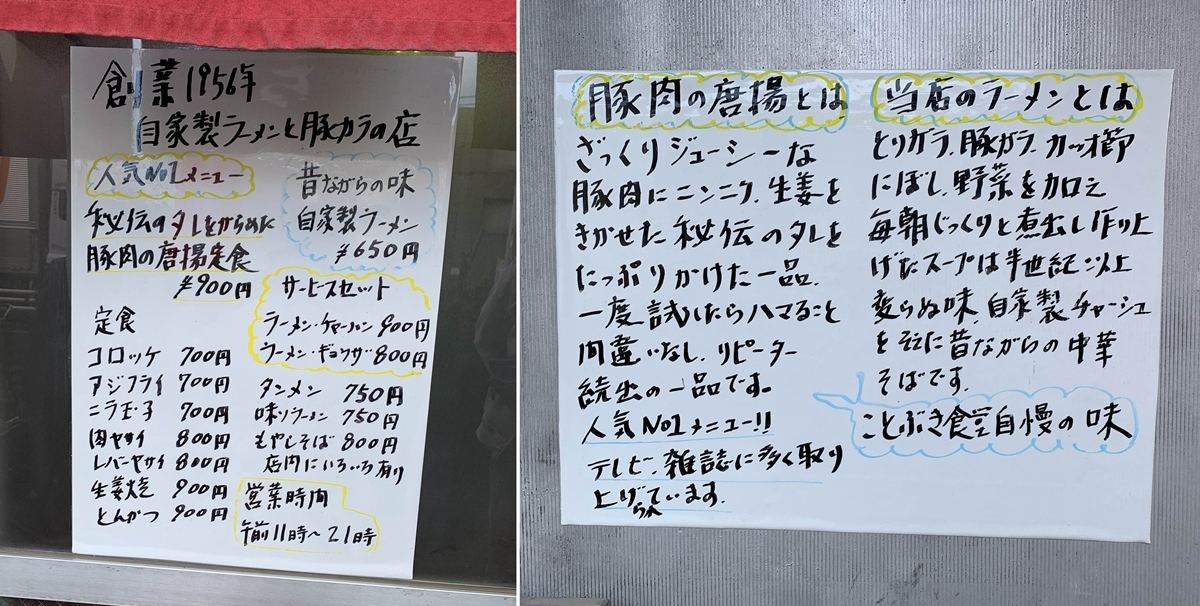 創業1956年
自家製ラーメンと豚カラの店
人気No1メニュー
秘伝のタレをからめた
豚肉の唐揚定食
¥900円
昔ながらの味
自家製ラーメン
¥650円
サービスセット
ラーメン・チャーハン 900円
ラーメン・ギョウザ 800円
定食
コロッケ 700円
アジフライ 700円
ニラ玉子 700円
肉ヤサイ 800円
レバーヤサイ 800円
生姜焼 900円
とんかつ 900円
タンメン 750円
味ソラーメン 750円
もやしそば 800円
店内にいろいろ有り
営業時間
午前11時〜21時
豚肉の唐揚とは
ざっくりジューシーな
豚肉にニンニク、生姜を
きかせた秘伝のタレを
たっぷりかけた一品、
一度試したらハマること
間違いなし、リピーター
続出の一品です。
人気No1メニュー!!
テレビ、雑誌に多く取り
上げられています。
当店のラーメンとは
とりガラ、豚ガラ、カツオ節
にぼし、野菜を加え
毎朝じっくりと煮出し作り上
げたスープは半世紀以上
変らぬ味、自家製チャーシュ
をそえた昔ながらの中華
そばです。
ことぶき食堂自慢の味